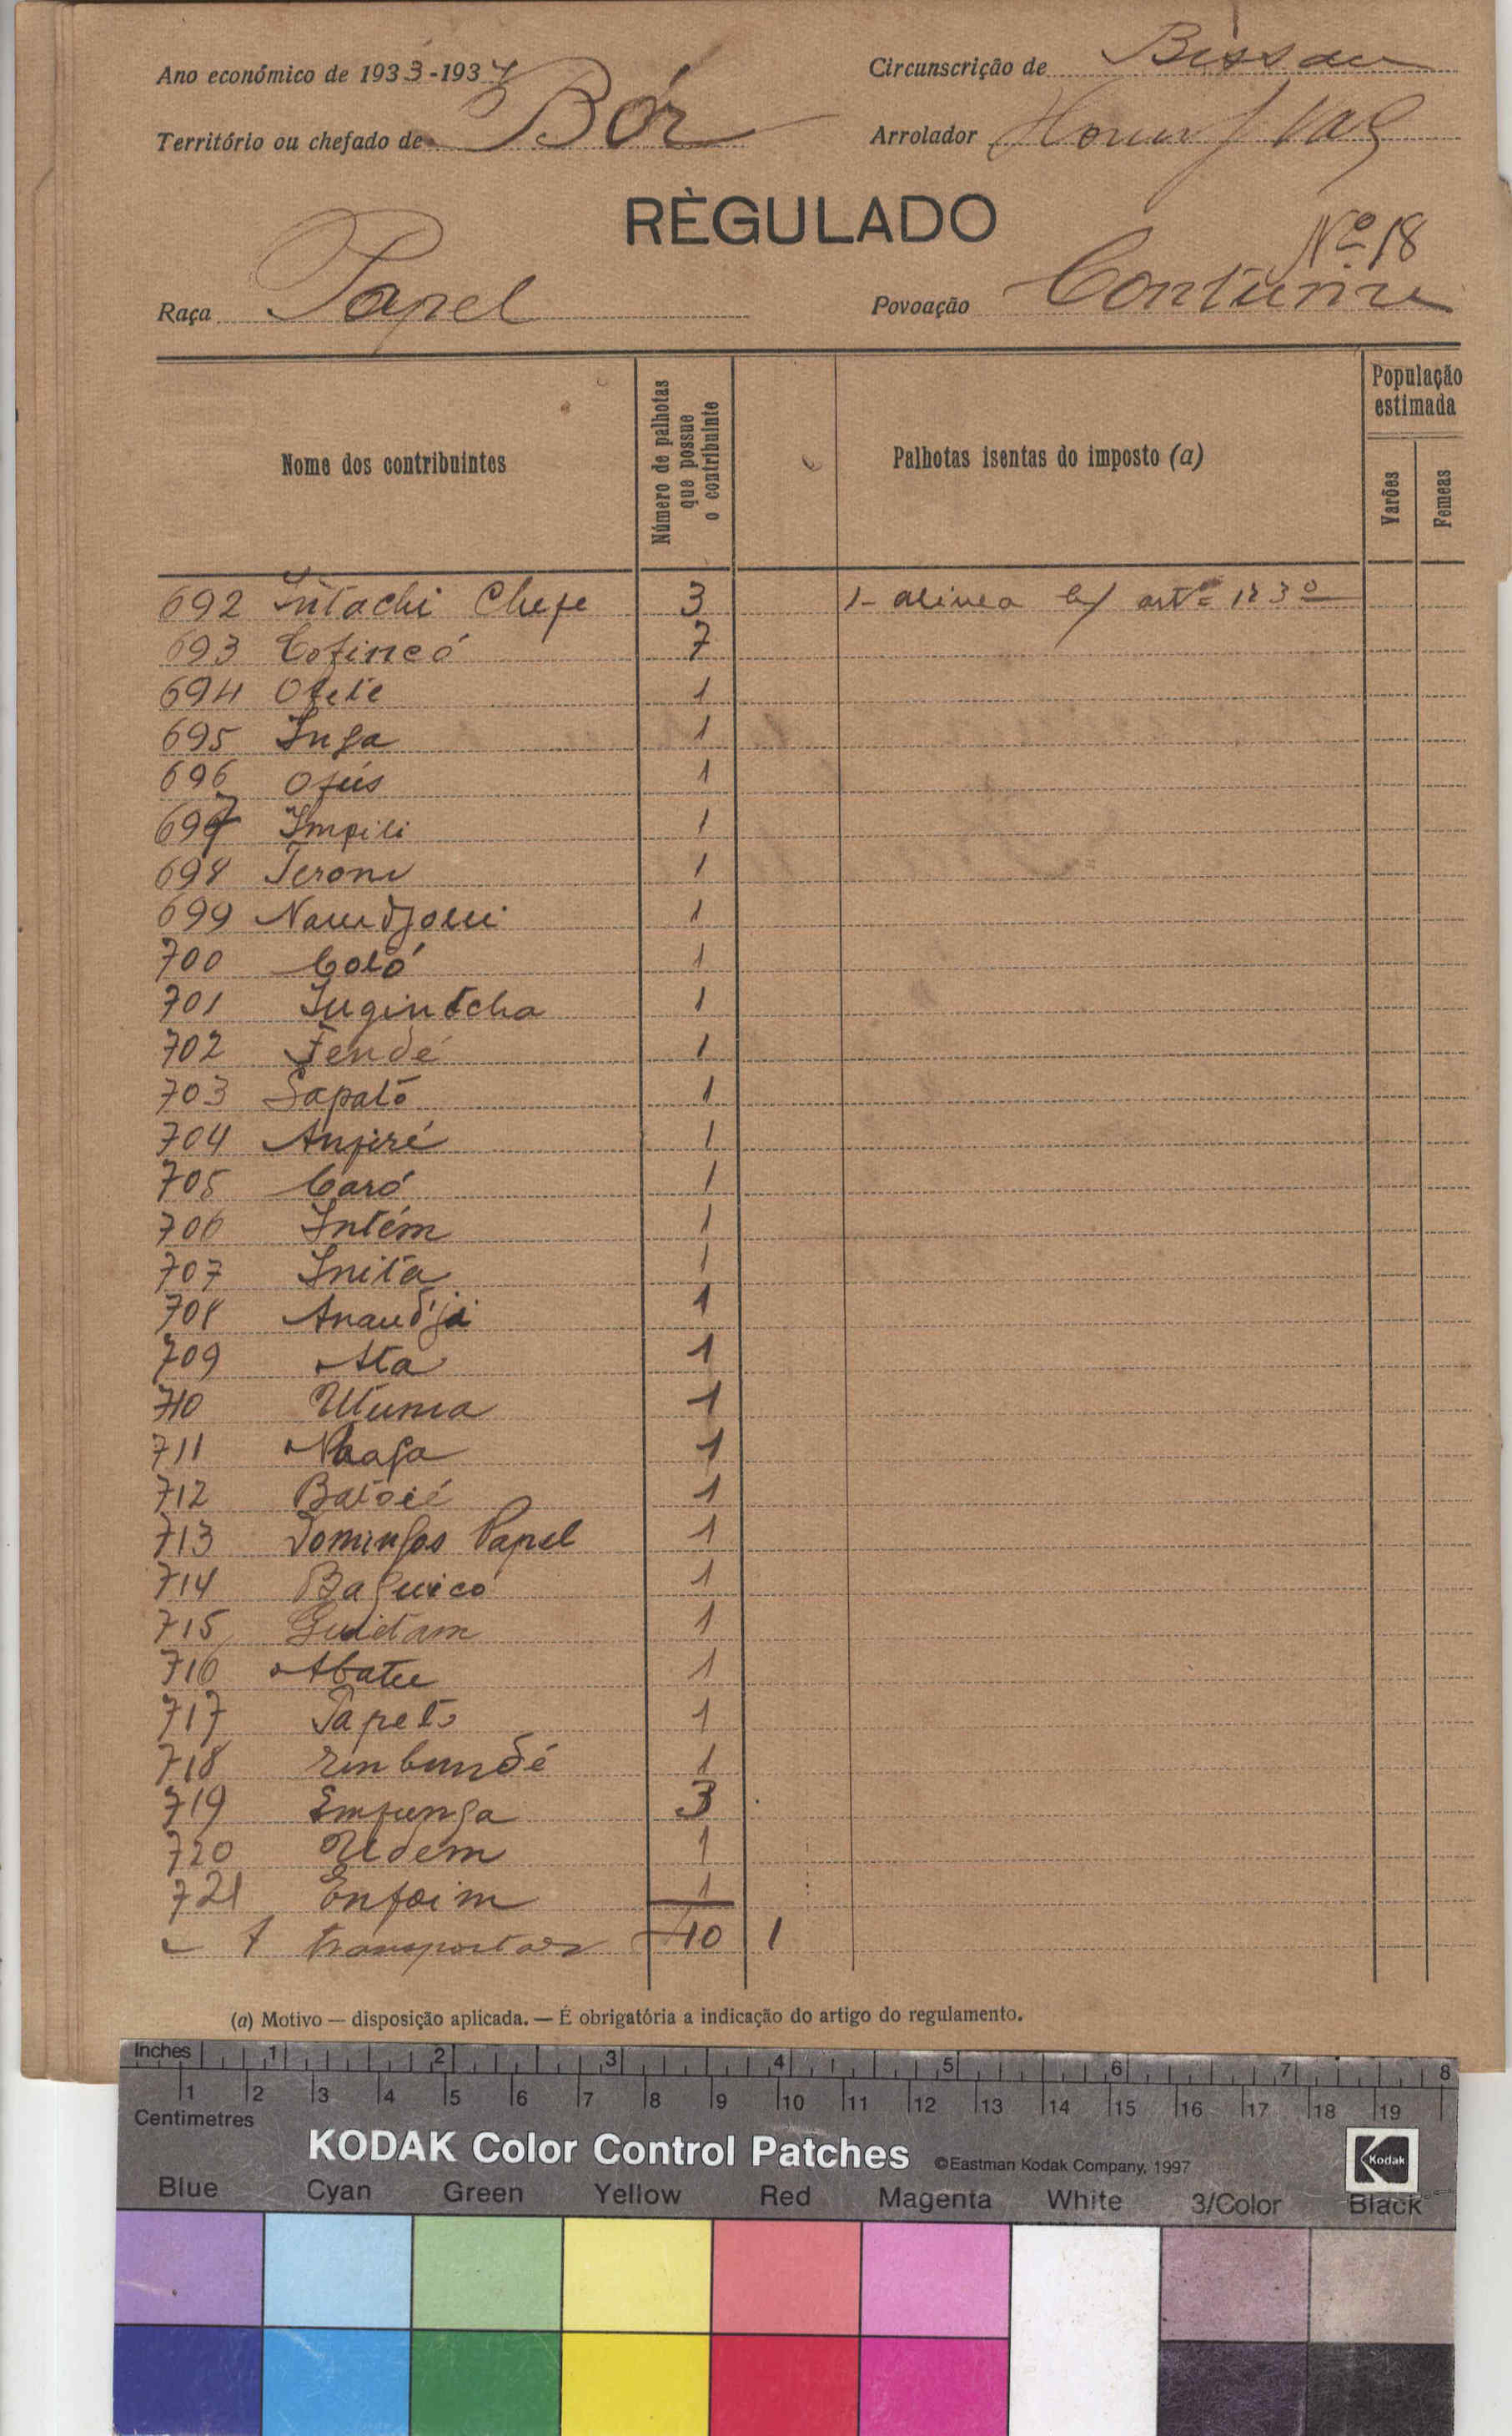 Ano económico de 1933-1934 Circunscrição de Bissau
Território ou chefado de Bór Arrolador Vaz
RÈGULADO
Nº 18
Raça Papel Povoação Contume
Nome dos contribuintes
Número de palhotas que possue o contribuinte
Palhotas isentas do imposto (a)
População estimada
Varões
Femeas
692 Intachi Chefe 3 1- alinea b) artº= 123º
693 Cofincó 7
694 Ofete 1
695 Inga 1
696 Ofús 1
697 Impili 1
698 Jeroni 1
699 Naundjoui 1
700 Coló 1
701 Iugintcha 1
702 Fendé 1
703 Sapató 1
704 Anfiré 1
705 Caró 1
706 Intém 1
707 Inita 1
708 Anaudja 1
709 Ata 1
710 Utuma 1
711 Naga 1
712 Batoié 1
713 Domingos Papel 1
714 Baguico 1
715 Guidam 1
716 Abatu 1
717 Papeto 1
718 Rinbundé 1
719 Empunga 3
720 Udem 1
721 Enfoim 1
A transportar 40 1
(a) Motivo — disposição aplicada. — É obrigatória a indicação do artigo do regulamento.
Inches 1 2 3 4 5 6 7 8
1 2 3 4 5 6 7 8 9 10 11 12 13 14 15 16 17 18 19
Centimetres
KODAK Color Control Patches ©Eastman Kodak Company, 1997 Kodak
Blue Cyan Green Yellow Red Magenta White 3/Color Black